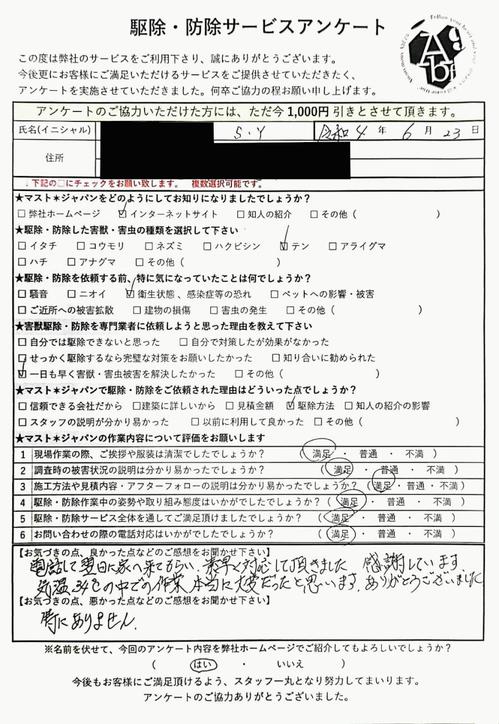 駆除・防除サービスアンケート
この度は弊社のサービスをご利用下さり、誠にありがとうございます。
今後更にお客様にご満足いただけるサービスをご提供させていただきたく、
アンケートを実施させていただきました。何卒ご協力の程お願い申し上げます。
アンケートのご協力いただけた方には、ただ今1,000円 引きとさせて頂きます。
氏名(イニシャル) S.Y 令和 4 年 6 月 23 日
住所
↓下記の□にチェックをお願い致します。 複数選択可能です。
★マスト＊ジャパンをどのようにしてお知りになりましたでしょうか?
□ 弊社ホームページ ☑ インターネットサイト □ 知人の紹介 □ その他 ( )
★駆除・防除した害獣・害虫の種類を選択して下さい
□ イタチ □ コウモリ □ ネズミ □ ハクビシン ☑ テン □ アライグマ
□ ハチ □ アナグマ □ その他 ( )
★駆除・防除を依頼する前、特に気になっていたことは何でしょうか?
□ 騒音 □ ニオイ ☑ 衛生状態、感染症等の恐れ □ ペットへの影響・被害
□ ご近所への被害拡散 □ 建物の損傷 □ 害虫の発生 □ その他 ( )
★害獣駆除・防除を専門業者に依頼しようと思った理由を教えて下さい
□ 自分では駆除できないと思った □ 自分で対策したが効果がなかった
□ せっかく駆除するなら完璧な対策をお願いしたかった □ 知り合いに勧められた
☑ 一日も早く害獣・害虫被害を解決したかった □ その他 ( )
★マスト＊ジャパンで駆除・防除をご依頼された理由はどういった点でしょうか?
□ 信頼できる会社だから □ 建築に詳しいから □ 見積金額 ☑ 駆除方法 □ 知人の紹介の影響
□ スタッフの説明が分かり易かった □ 以前に利用して良かった □ その他 ( )
★マスト＊ジャパンの作業内容について評価をお願いします
1 現場作業の際、ご挨拶や服装は清潔でしたでしょうか? ( 満足 ・ 普通 ・ 不満 )
2 調査時の被害状況の説明は分かり易かったでしょうか? ( 満足 ・ 普通 ・ 不満 )
3 施工方法や見積内容・アフターフォローの説明は分かり易かったでしょうか? ( 満足 ・ 普通 ・ 不満 )
4 駆除・防除作業中の姿勢や取り組み態度はいかがでしたでしょうか? ( 満足 ・ 普通 ・ 不満 )
5 駆除・防除サービス全体を通してご満足頂けましたでしょうか? ( 満足 ・ 普通 ・ 不満 )
6 お問い合わせの際の電話対応はいかがでしたでしょうか? ( 満足 ・ 普通 ・ 不満 )
【お気づきの点、良かった点などのご感想をお聞かせ下さい】
電話して翌日に家へ来てもらい、素早く対応して頂きました 感謝しています。
気温34℃の中での作業 本当に大変だったと思います。ありがとうございました
【お気づきの点、悪かった点などのご感想をお聞かせ下さい】
特にありません.
※名前を伏せて、今回のアンケート内容を弊社ホームページでご紹介してもよろしいでしょうか?
( はい ・ いいえ )
今後もお客様にご満足頂けるよう、スタッフ一丸となり努力してまいります。
アンケートのご協力ありがとうございました。